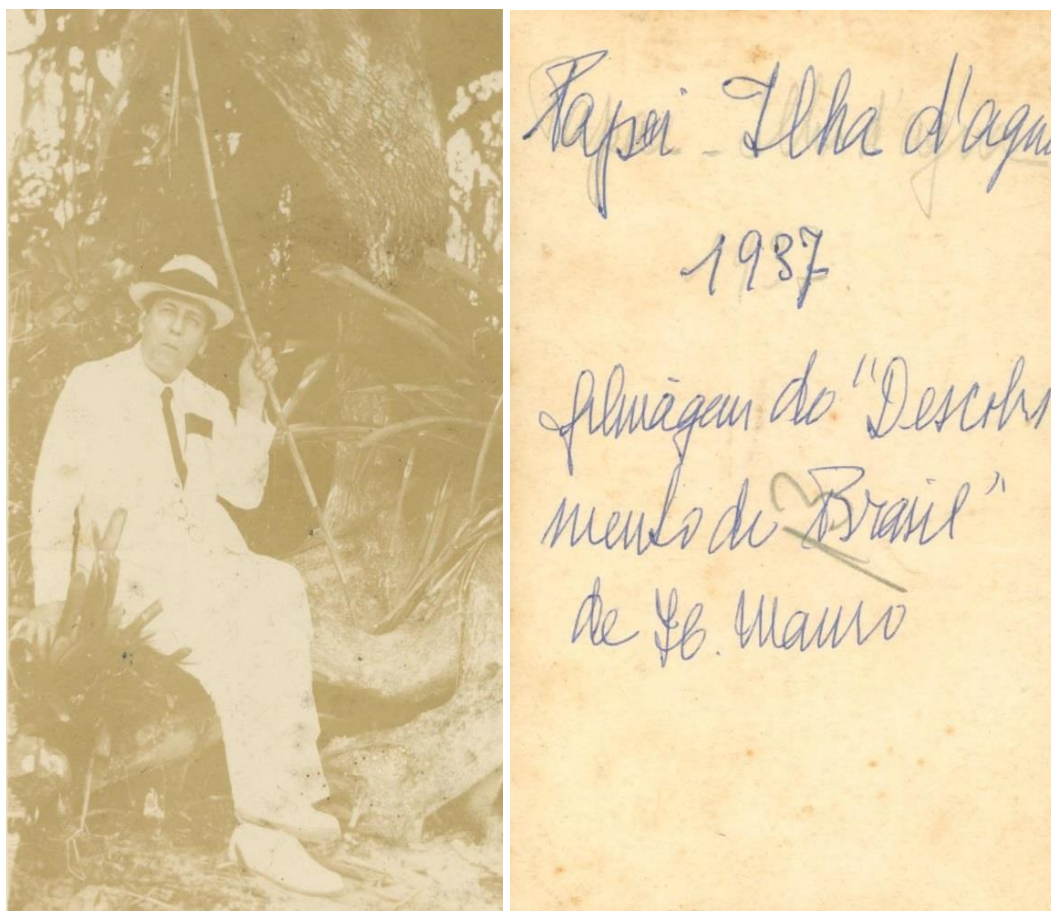 Papai - Ilha d'agu
1937
filmágem do "Descobr
mento do Brasil"
13
de H. Mauro